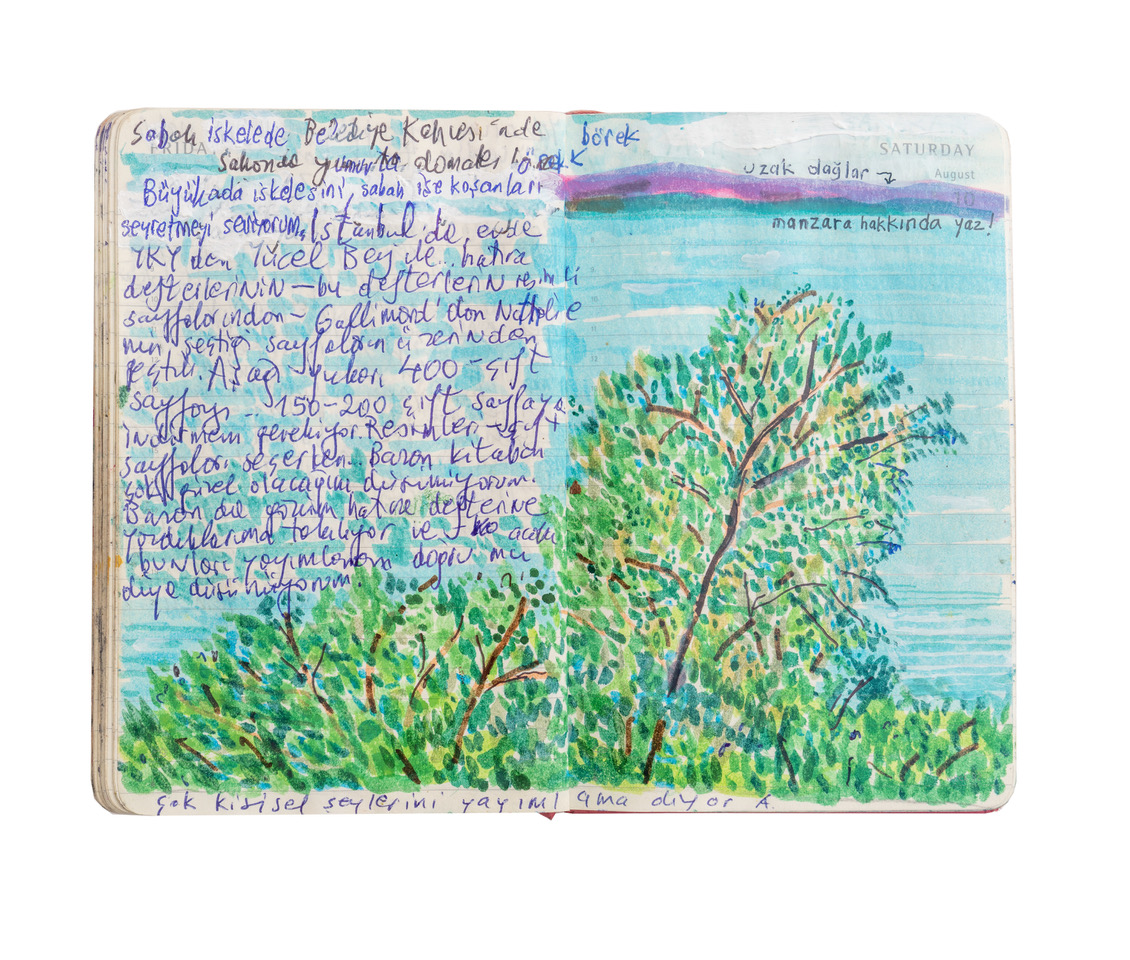 Sabah iskelede Belediye Kahvesi'nde börek
FRIDAY
SATURDAY
Sahanda yumurta domates börek
August
uzak dağlar
10
Büyükada iskelesini, sabah işe koşanları
seyretmeyi seviyorum. İstanbul'da, evde
manzara hakkında yaz!
YKY'den Yücel Bey ile.. hatıra
defterlerinin – bu defterlerin resimli
sayfalarından – Gallimard'dan Nathalie
nin seçtiği sayfaların üzerinden
geçtik. Aşağı yukarı 400 çift
sayfayı.. 150-200 çift sayfaya
indirmem gerekiyor. Resimleri – çift
sayfaları seçerken.. Bazan kitabın
çok güzel olacağını düşünüyorum.
Bazan da gözüm hatıra defterine
yazdıklarıma takılıyor ve
bunları yayımlamam doğru mu
diye düşünüyorum.
Çok kişisel şeylerini yayımlama diyor A.